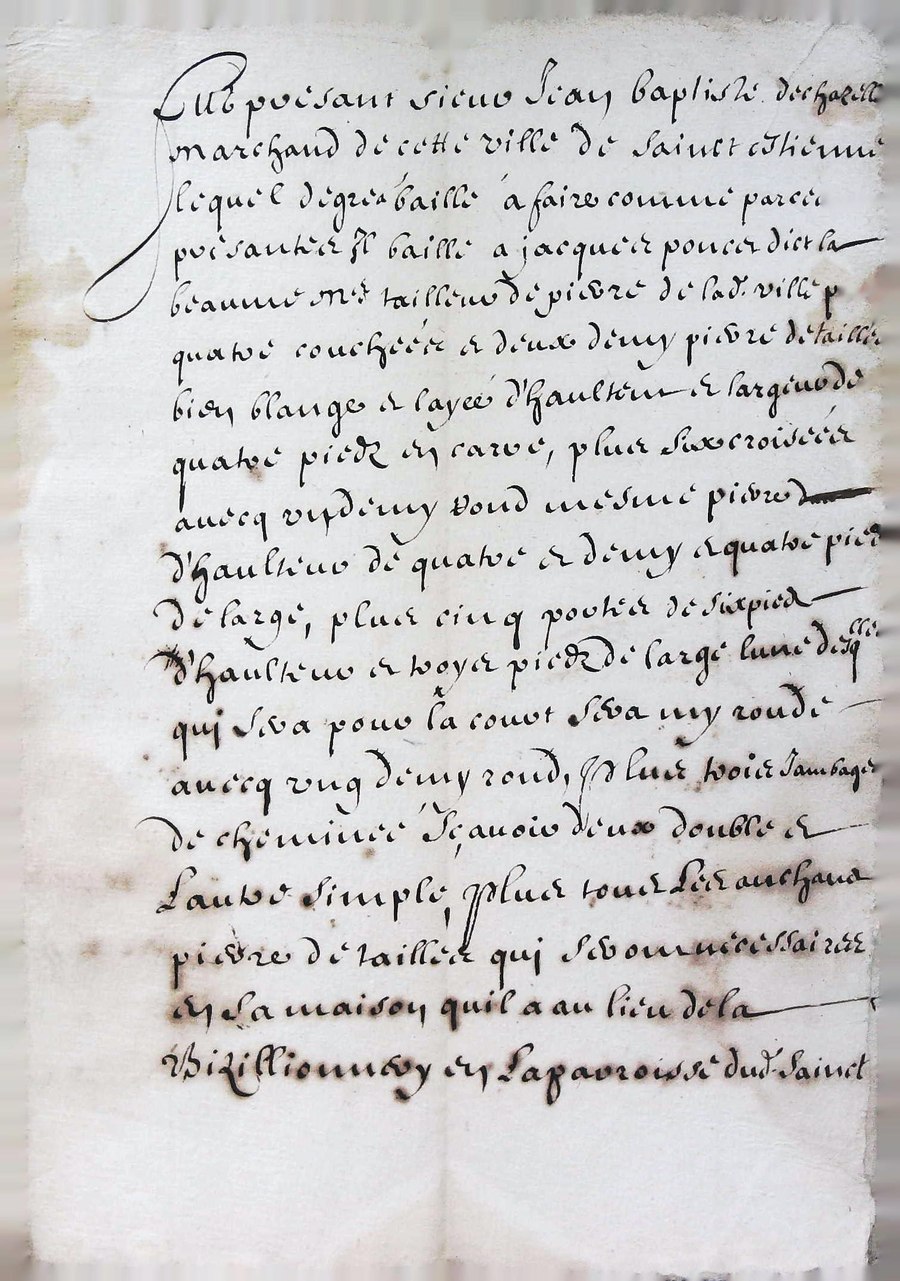 Fut présant sieur Jean baptiste dechazell
marchand de cette ville de sainct estienne
lequel de gré a baillé à faire comme par ces
présantes Il baille a jacques ponces dict la
beaume me tailleur de pierre de lad. ville
quatre couchéés et deux demy pierre de taille
bien blange et layeé d'haulteur et largeur de
quatre piedz en carre, plus six croiséés
avecq un demy rond mesme pierre
d'haulteur de quatre et demy et quatre pied
de large, plus cinq portes de six pied
d'haulteur et troyes piedz de large lune desqlles
qui sera pour la court sera my ronde
avecq ung demy rond, Plus trois Jambages
de cheminéé sçavoir deux double et
Lautre simple, Plus tous Les
pierre de taillés qui seront necessaires
en sa maison quil a au lieu de la
en La parroisse dud. sainct